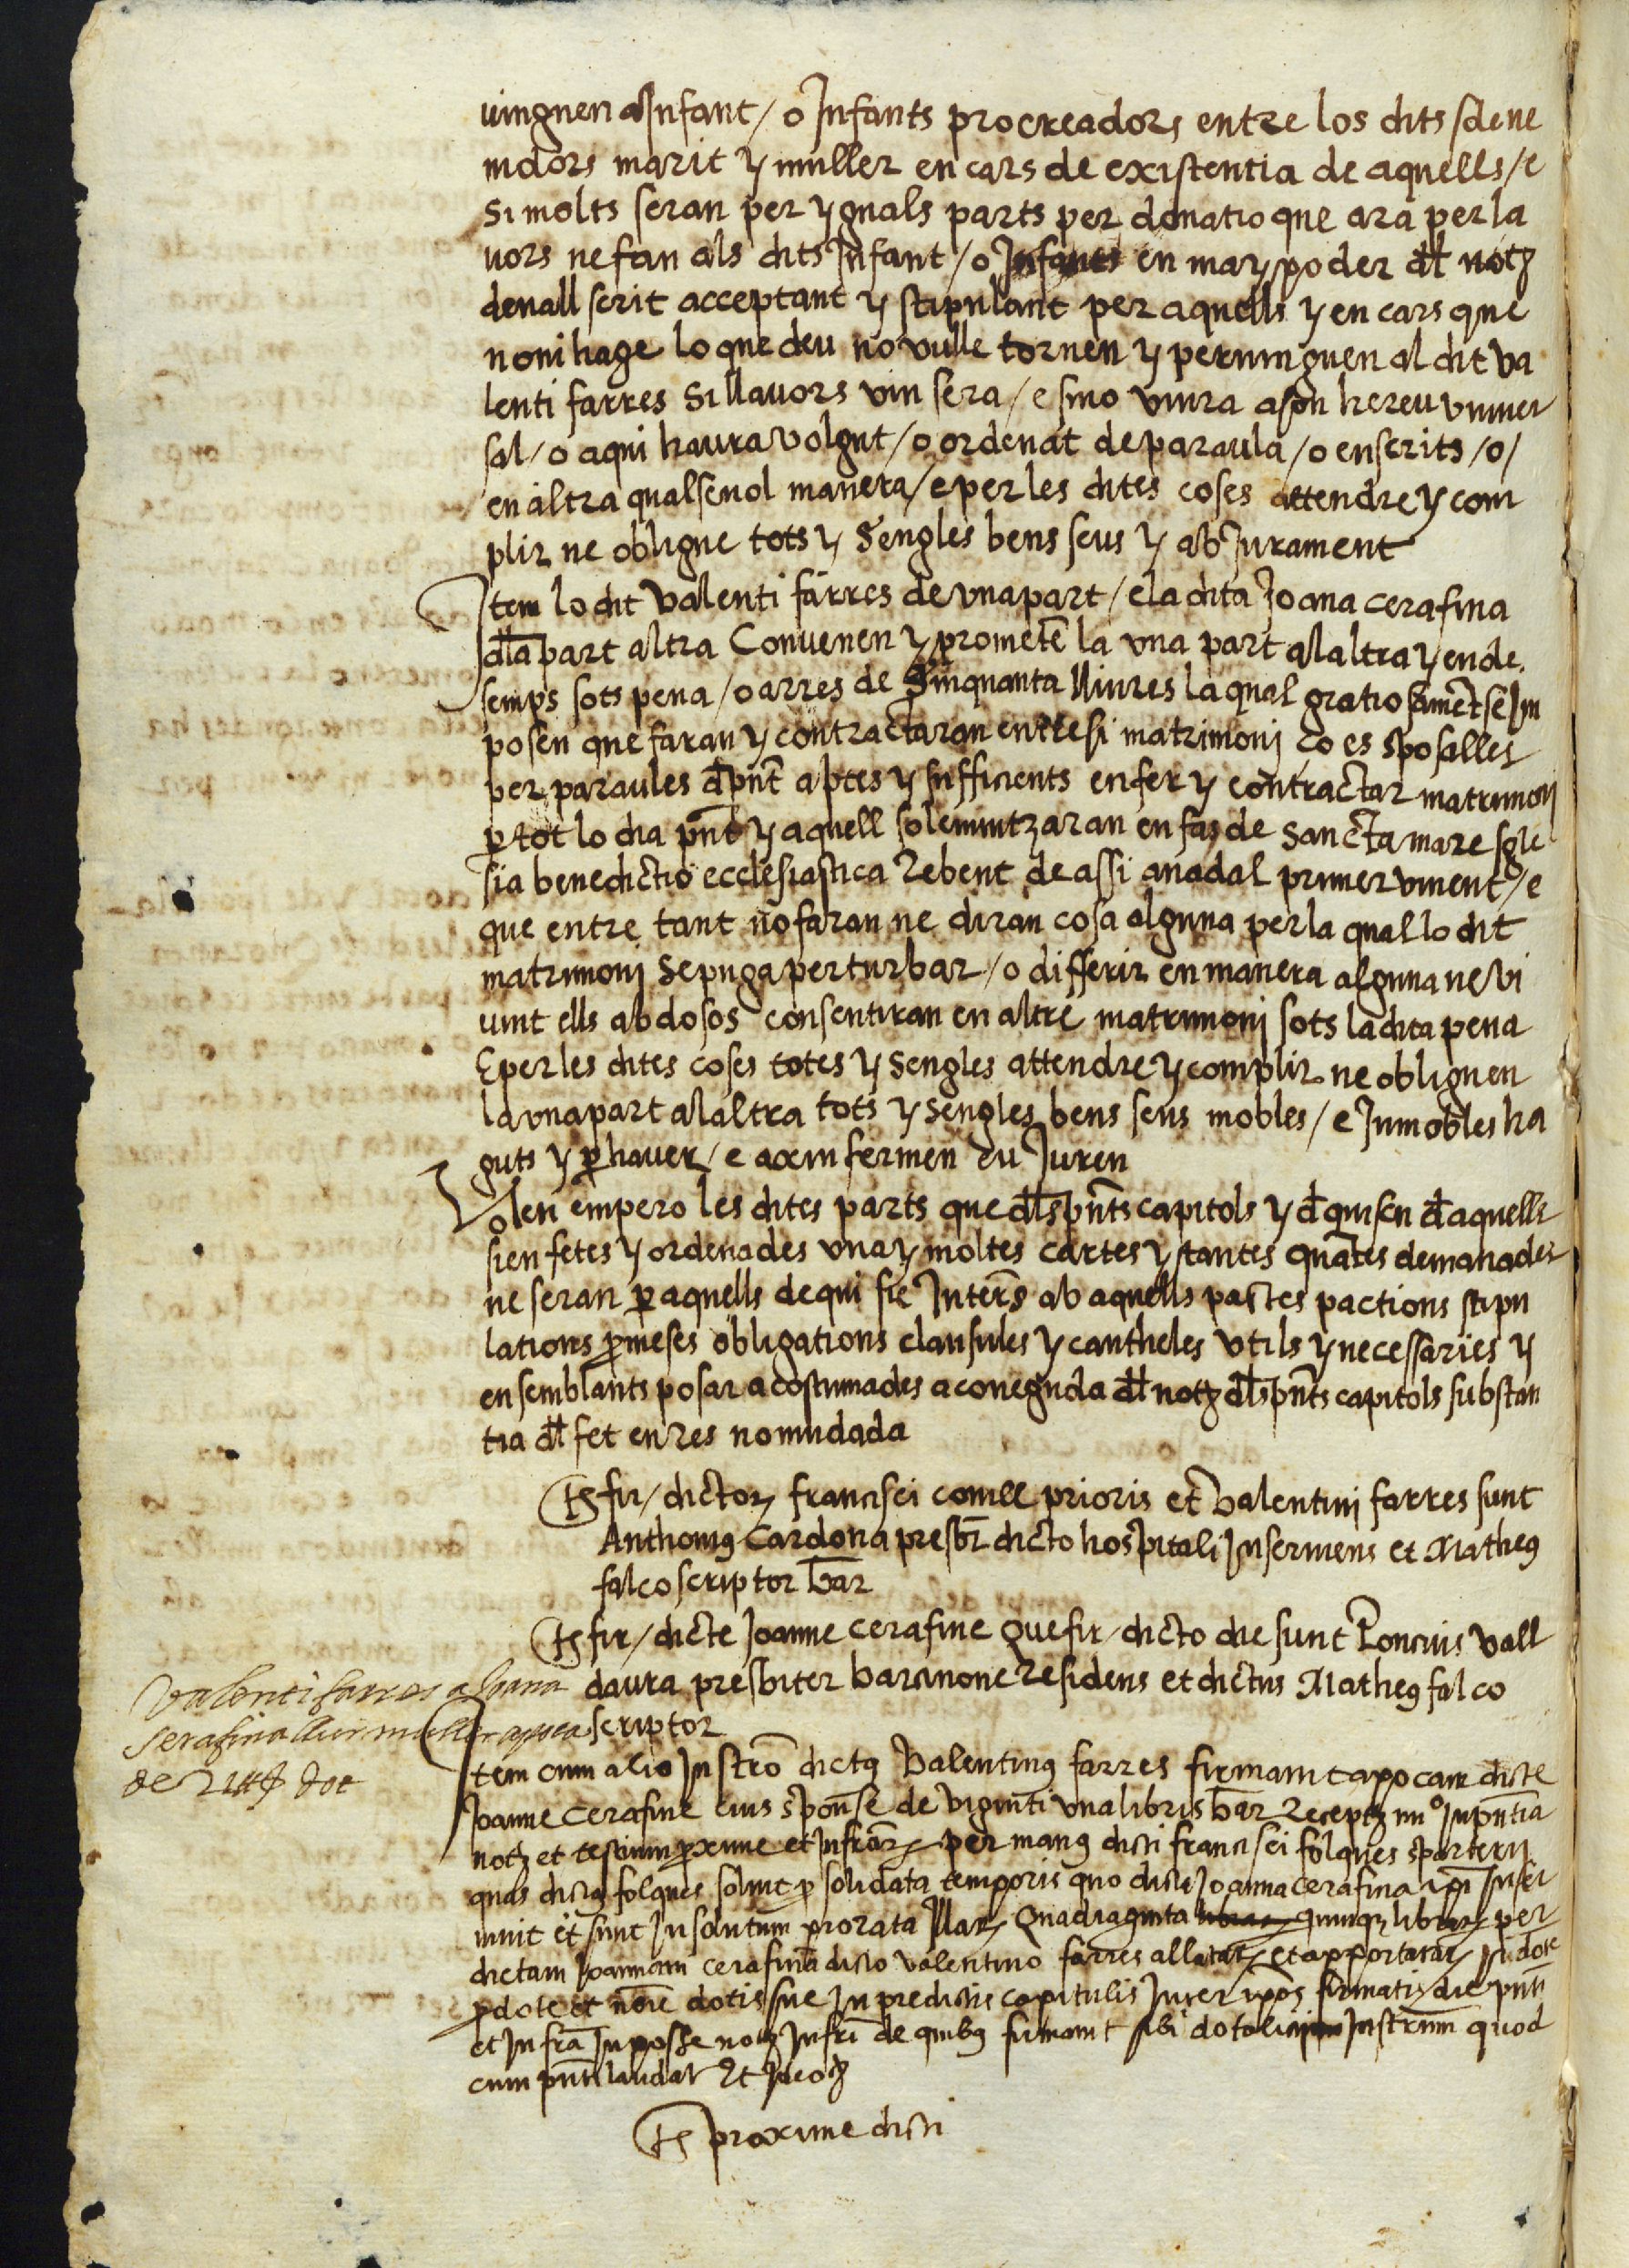 vingnen a Infant / o Infants procreadors entre los dits sdeue
nidors marit y muller en cars de existentia de aquells / e
Si molts seran per yguals parts per donatio que ara per la
vors ne fan als dits Infant / o Infants en ma y poder dl notʒ
devall scrit acceptant y stipulant per aquells y en cars que
no ni hage lo que deu no vulle tornen y pervinguen al dit Va
lenti farres Si llavors viu sera / e sino viura a son hereu vniver
sal / o a qui haura volgut / o ordenat de paraula / o en scrits / o /
en altra qualsevol manera / e per les dites coses attendre y com
plir ne obligue tots y Sengles bens seus y ab Jurament
Item lo dit Valenti farres de vna part / e la dita Joana cerafina
dla part altra Convenen y prometē la vna part a la altra y ende
semps sots pena / o arres de Sinquanta lliures la qual gratiosamēt se Im
posen que faran y contractaran entre si matrimoni ço es sposalles
per paraules d pnt aptes y sufficients en fer y contractar matrimonj
p tot lo dia pnt y aquell solemnitzaran en fas de Sancta mare sgle
sia benedictio ecclesiastica Rebent de assi a nadal primer vinent / e
que entre tant no faran ne diran cosa alguna per la qual lo dit
matrimonj Se puga perturbar / o differir en manera alguna ne vi
vint ells abdosos consentiran en altre matrimonj sots la dita pena
E per les dites coses totes y Sengles attendre y complir ne obliguen
la vna part a la altra tots y Sengles bens seus mobles / e Inmobles ha
guts y p haver / e axin fermen eu Juren
Volen empero les dites parts que dls pnts capitols y d quiscu d aquells
sien fetes y ordenades vna y moltes cartes y tantes quātes demanades
ne seran p aquells de qui sie Interes ab aquells pactes pactions stipu
lations pmeses obligations clausules y cautheles vtils y necessaries y
en semblants posar acostumades a coneguda dl notʒ dls pnts capitols substan
tia dl fet en res no mudada
Ts fir / dictorꝝ francisci conill prioris et Valentinj farres sunt
Anthoniꝰ Cardona presbr dicto hospitali Inserviens et Matheꝰ
falco scriptor bar
Ts fir / dicte Joanne cerafine que fir / dicto die sunt Loncius Vall
daura presbiter barcinone Residens et dictus Matheꝰ falco
scriptor
Valenti farres a Joana
serafina sa muller apoca
de 21 ll dot
Item cum alio Instro dictꝰ Valentinꝰ farres firmavit apocam dicte
Joanne cerafine eius sponse de viginti vna libris bar Receptʒ nuo In pntia
notʒ et testium pxime et infrarꝝ per manꝰ dicti francisci folques sparterij
quas dictꝰ folques solvit p solidata temporis quo dicta Joanna cerafina ipi Inser
vivit et sunt In solutum prorata Illarꝝ Quadraginta quinqʒ librarꝝ per
dictam Joannam cerafinā dicto valentino farres allatarꝝ et apportatarꝝ In dote
p dote et noīe dotis sue In predictis capitulis Inter ipos firmatis die pnti
et Infra In posse notʒ Infri de quibꝰ firmavit sibi dotale Instrum quod
cum pnti laudat Et Ideo ʒ
Ts proxime dicti